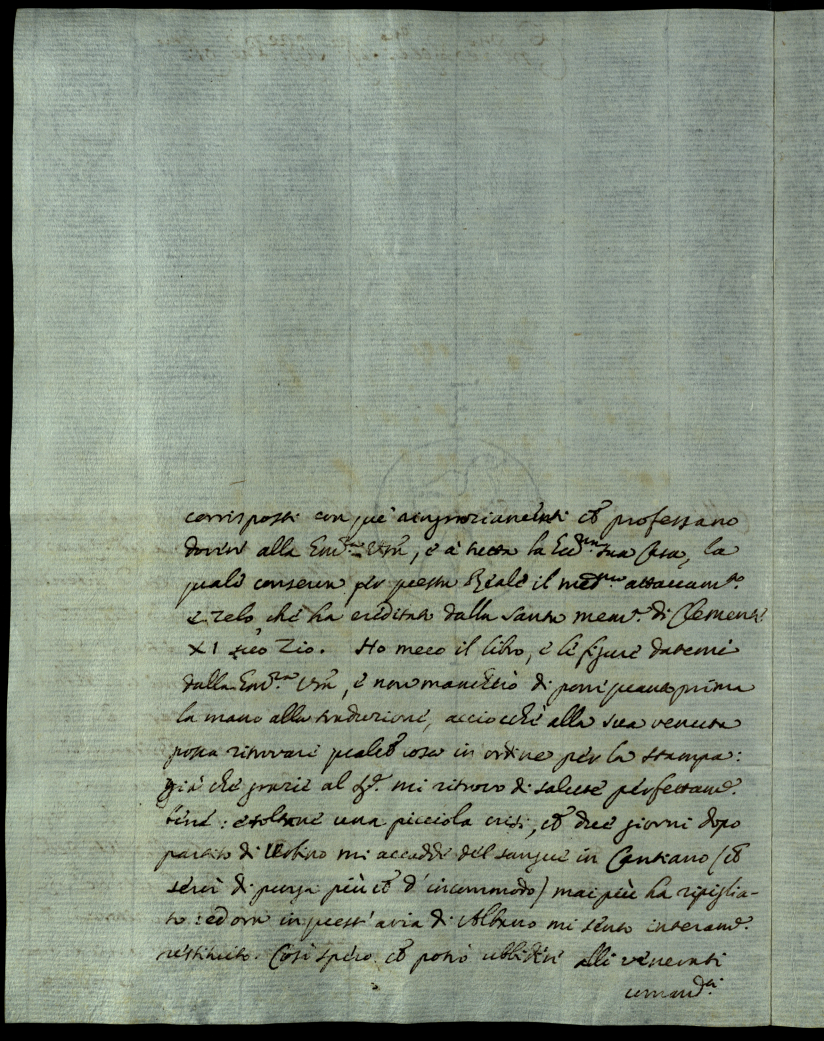 corrisposti con que' ringraziamenti che professano
dovere alla Em.za V.ra, e a tutta la Ecc.ma sua Casa, la
quale conserva per questa Reale il med.mo attaccam.to
e zelo che ha ereditato dalla santa mem.a di Clemente
XI suo Zio. Ho meco il libro, e le figure datemi
dalla Em.za V.ra, e non mancherò di porre quanto prima
la mano alla traduzione, acciocché alla sua venuta
possa ritrovare qualche cosa in ordine per la stampa:
già che grazie al S.re mi ritrovo di salute perfettam.e
bene: e soltane una picciola crisi, che due giorni dopo
partito di Urbino mi accadde del sangue in Cantiano (che
servì di purga più che d'incommodo) mai più ha ripiglia-
to: ed ora in quest'aria di Albano mi sento interam.e
restituito. Così spero che potrò ubbidire alli venerati
comandi